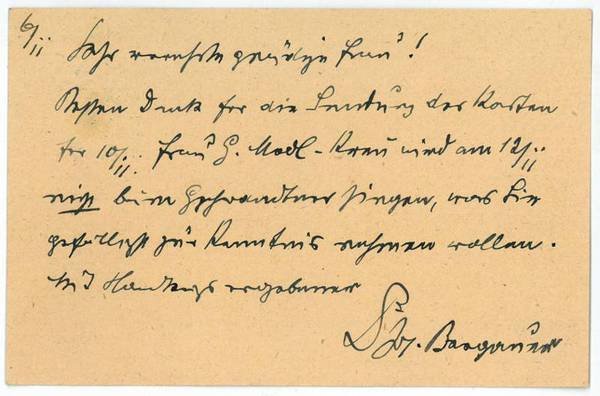 6/II
Sehr verehrte gnädige Frau!
Besten Dank für die Sendung der Karten
für 10/II. Frau G. Modl- wird am 12/II
nicht beim singen, was Sie
gefälligst zur Kenntnis nehmen wollen.
Mit Handkuß ergebener
Bergauer